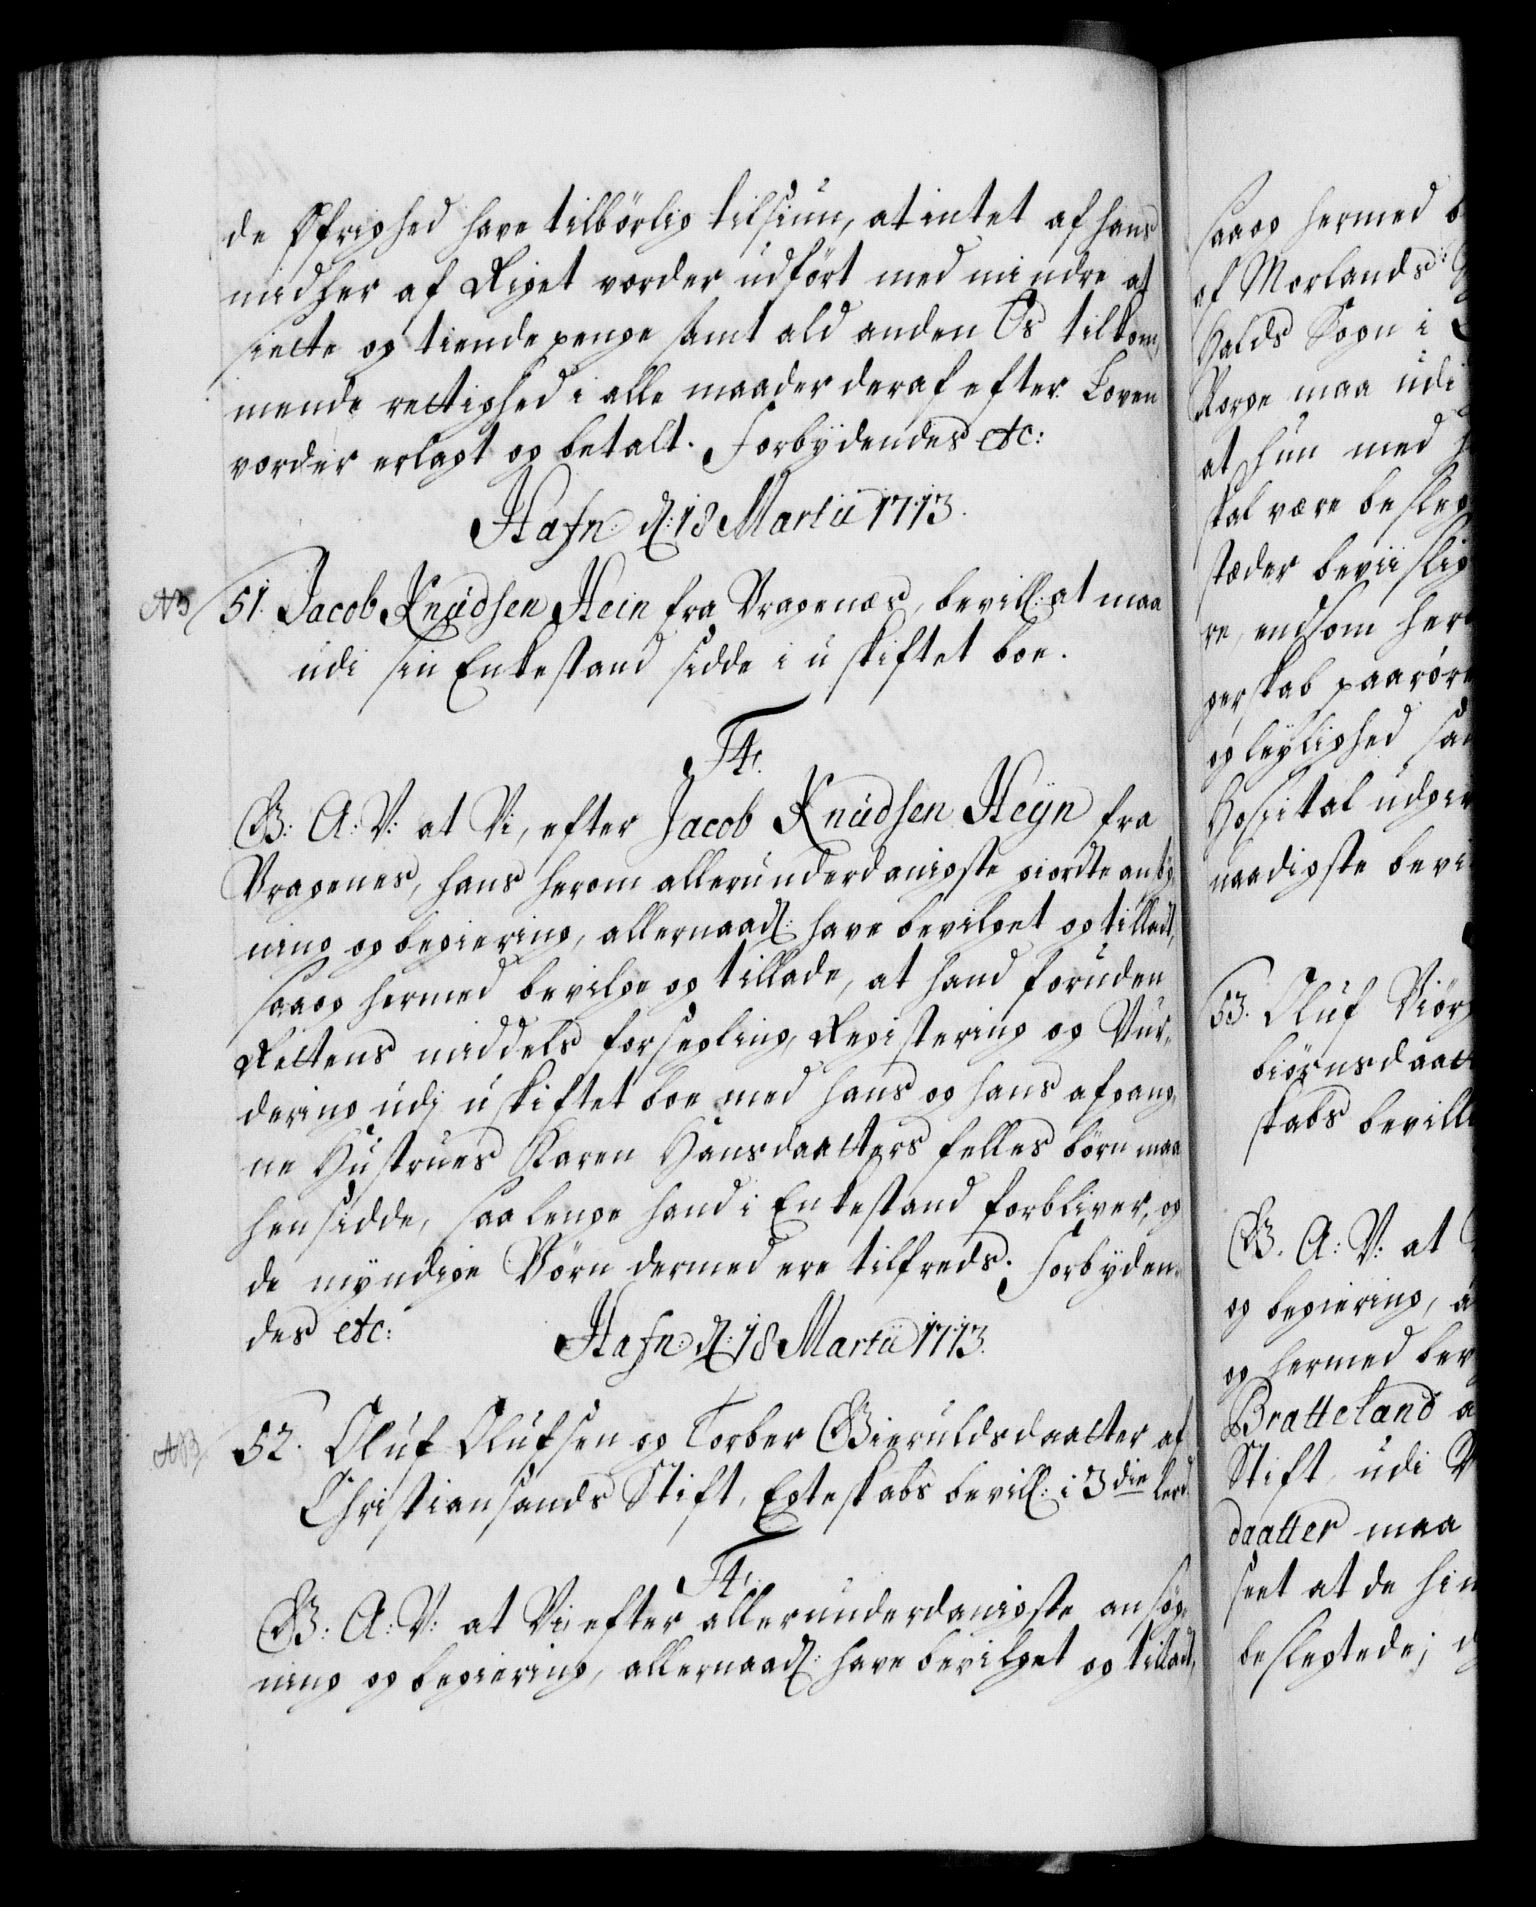 de Øfrighed have tilbørlig tilsiun, at intet af hans
midler af Riget vorder udført med mindre at
siette og tiende penge samt ald anden Os tilkom,
mende rettighed i alle maader deraf efter Loven
vorder erlagt og betalt. Forbydendes etc:
Hafn: d: 18 Martii 1713.
NB 51. Jacob Knudsen Hein fra Vragenæs, bevill: at maa
udi sin Enkestand sidde i u skiftet boe.
F4.
G: A: V: at Vi, efter Jacob Knudsen Heyn fra
Vragenes, hans herom allerunderdanigste giordte ansøg,
ning og begiering, allernaad: have bevilget og tilladt,
saa og hermed bevilge og tillade, at hand foruden
Rettens middels forsegling, Registering og Vur,
dering udj u skiftet boe med hans og hans afgang,
ne Hustrues Karen Hansdaatters felles børn maa
hensidde, saa lenge hand i Enkestand forbliver, og
de myndige Børn dermed ere tilfreds. Forbyden,
des etc: Hafn: d: 18 Martii 1713.
NB 52. Oluf Olufsen og Torber Gieruldsdaatter af
Christiansands Stift, Egteskabs bevill: i 3die leed.
F4.
G: A: V: at Vi, efter allerunderdanigste ansøg,
ning og begiering, allernaad: have bevilget og tilladt,
saa og hermed b
af Morlands
Halds Sogn i
Norge maa udi
at hun med h
skal være besleg
stæder beviislig
re, endsom her
gerskab paarør
og leylighed sa
Hospital udgiv
naadigste bevi
53. Oluf Biørn
biørnsdaatt
skabs bevill
G: A: V: at
og begiering, a
og hermed bev
Bratteland a
Stift, udi
daatter maa
seet at de hin
beslegtede; d